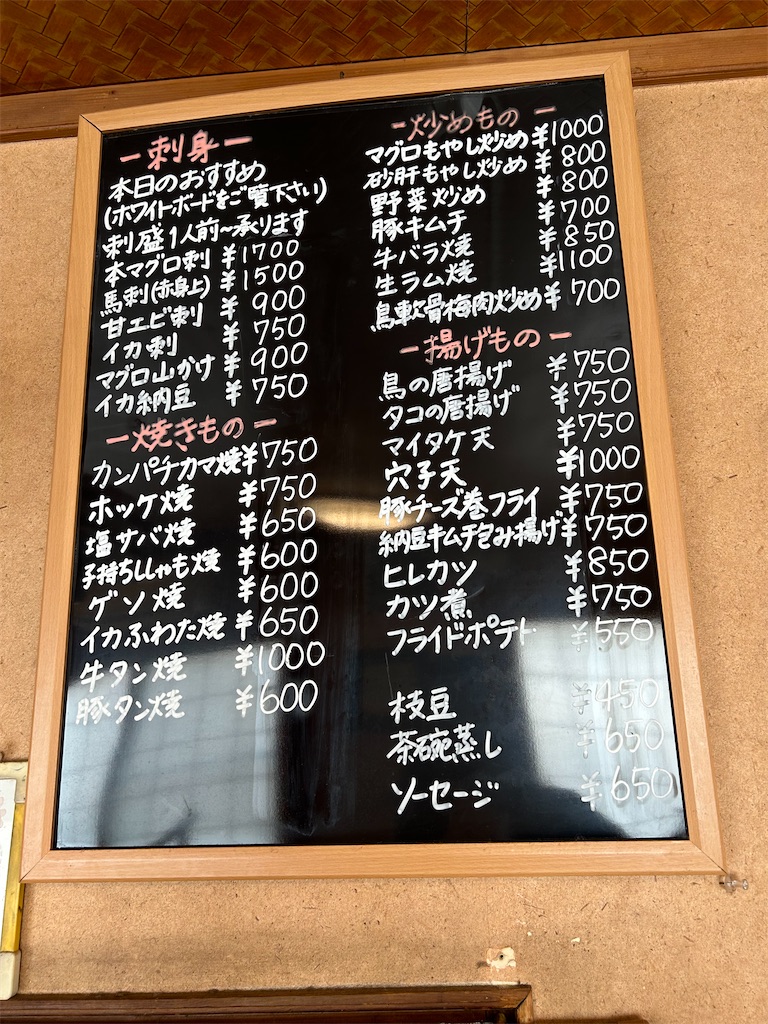 ー刺身ー
本日のおすすめ
(ホワイトボードをご覧下さい)
刺盛1人前~承ります
本マグロ刺 ¥1700
馬刺(赤身上) ¥1500
甘エビ刺 ¥900
イカ刺 ¥750
マグロ山かけ ¥900
イカ納豆 ¥750
ー焼きものー
カンパチカマ焼 ¥750
ホッケ焼 ¥750
塩サバ焼 ¥650
子持ちししゃも焼 ¥600
ゲソ焼 ¥600
イカふわた焼 ¥650
牛タン焼 ¥1000
豚タン焼 ¥600
ー炒めものー
マグロもやし炒め ¥1000
砂肝もやし炒め ¥800
野菜炒め ¥800
豚キムチ ¥700
牛バラ焼 ¥850
生ラム焼 ¥1100
鳥軟骨梅肉炒め ¥700
ー揚げものー
鳥の唐揚げ ¥750
タコの唐揚げ ¥750
マイタケ天 ¥750
穴子天 ¥1000
豚チーズ巻フライ ¥750
納豆キムチ包み揚げ ¥750
ヒレカツ ¥850
カツ煮 ¥750
フライドポテト ¥550
枝豆 ¥450
茶碗蒸し ¥650
ソーセージ ¥650